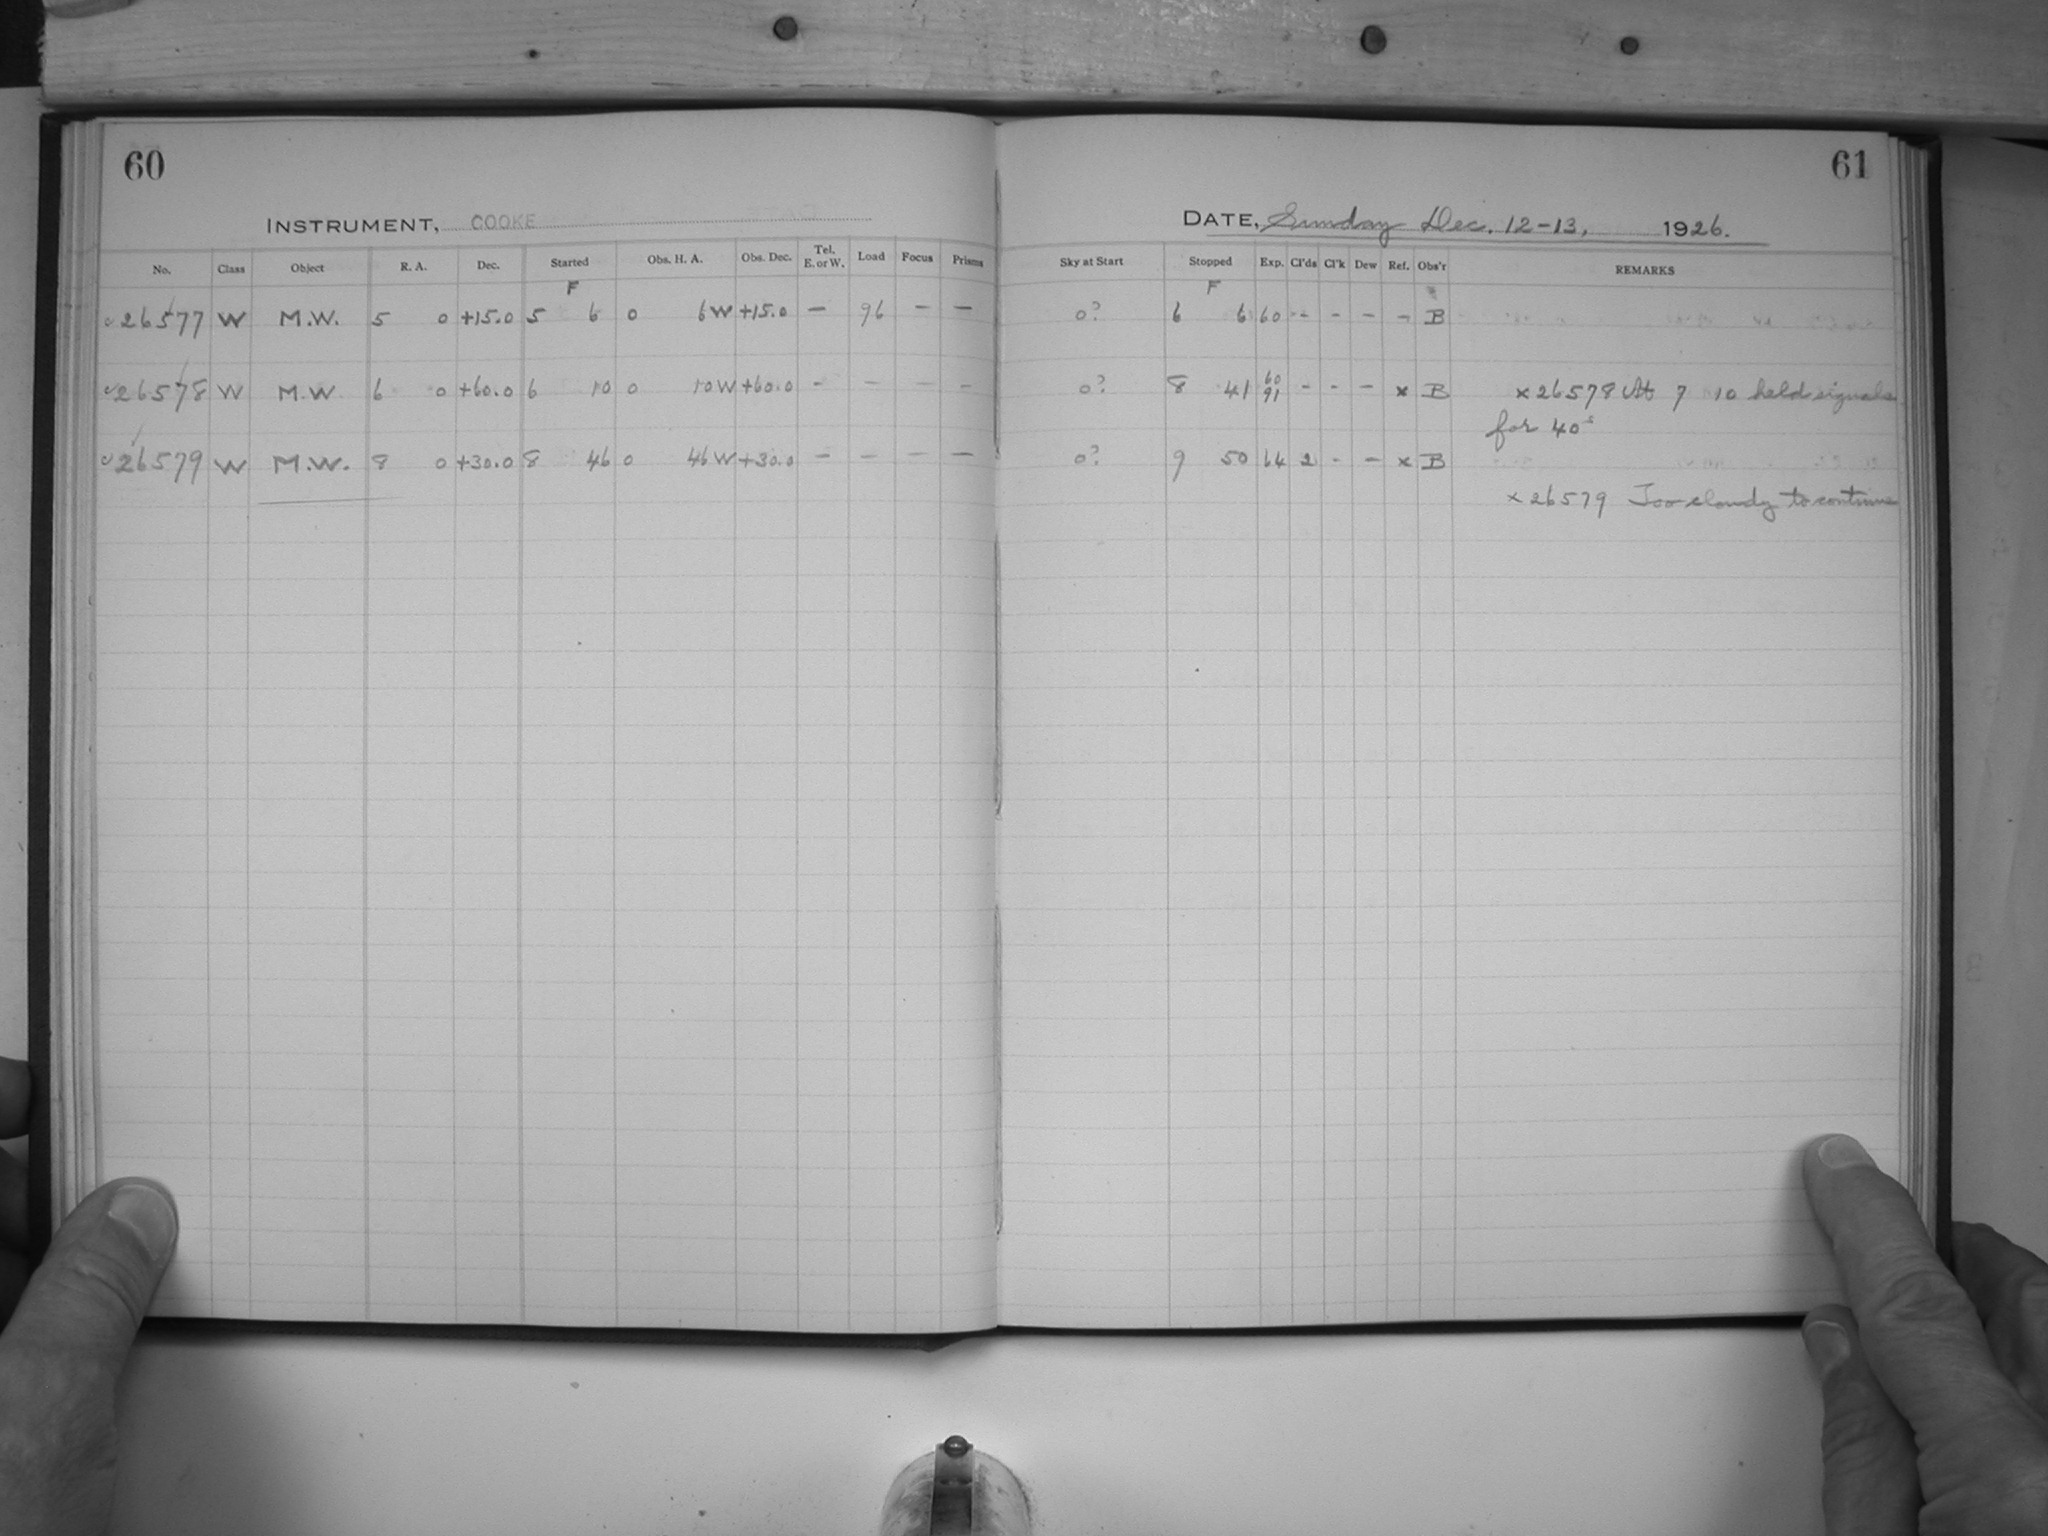 60
INSTRUMENT, COOKE
No. Class Object R. A. Dec. Started Obs. H. A. Obs. Dec. Tel. E. or W. Load Focus Prisms
F
26577 W M.W. 5 0 +15.0 5 6 0 6W +15.0 — 96 — —
26578 W M.W. 6 0 +60.0 6 10 0 10W +60.0 - - - -
26579 W M.W. 8 0 +30.0 8 46 0 46W +30.0 — - - —
61
DATE, Sunday Dec. 12-13, 1926.
Sky at Start Stopped Exp. Cl'ds Cl'k Dew Ref. Obs'r REMARKS
F
0? 6 6 60 - - - - B
0? 8 41 60 91 - - - x B x26578 At 7 10 held signals
for 40s
0? 9 50 64 2 - - x B
x26579 Too cloudy to continue